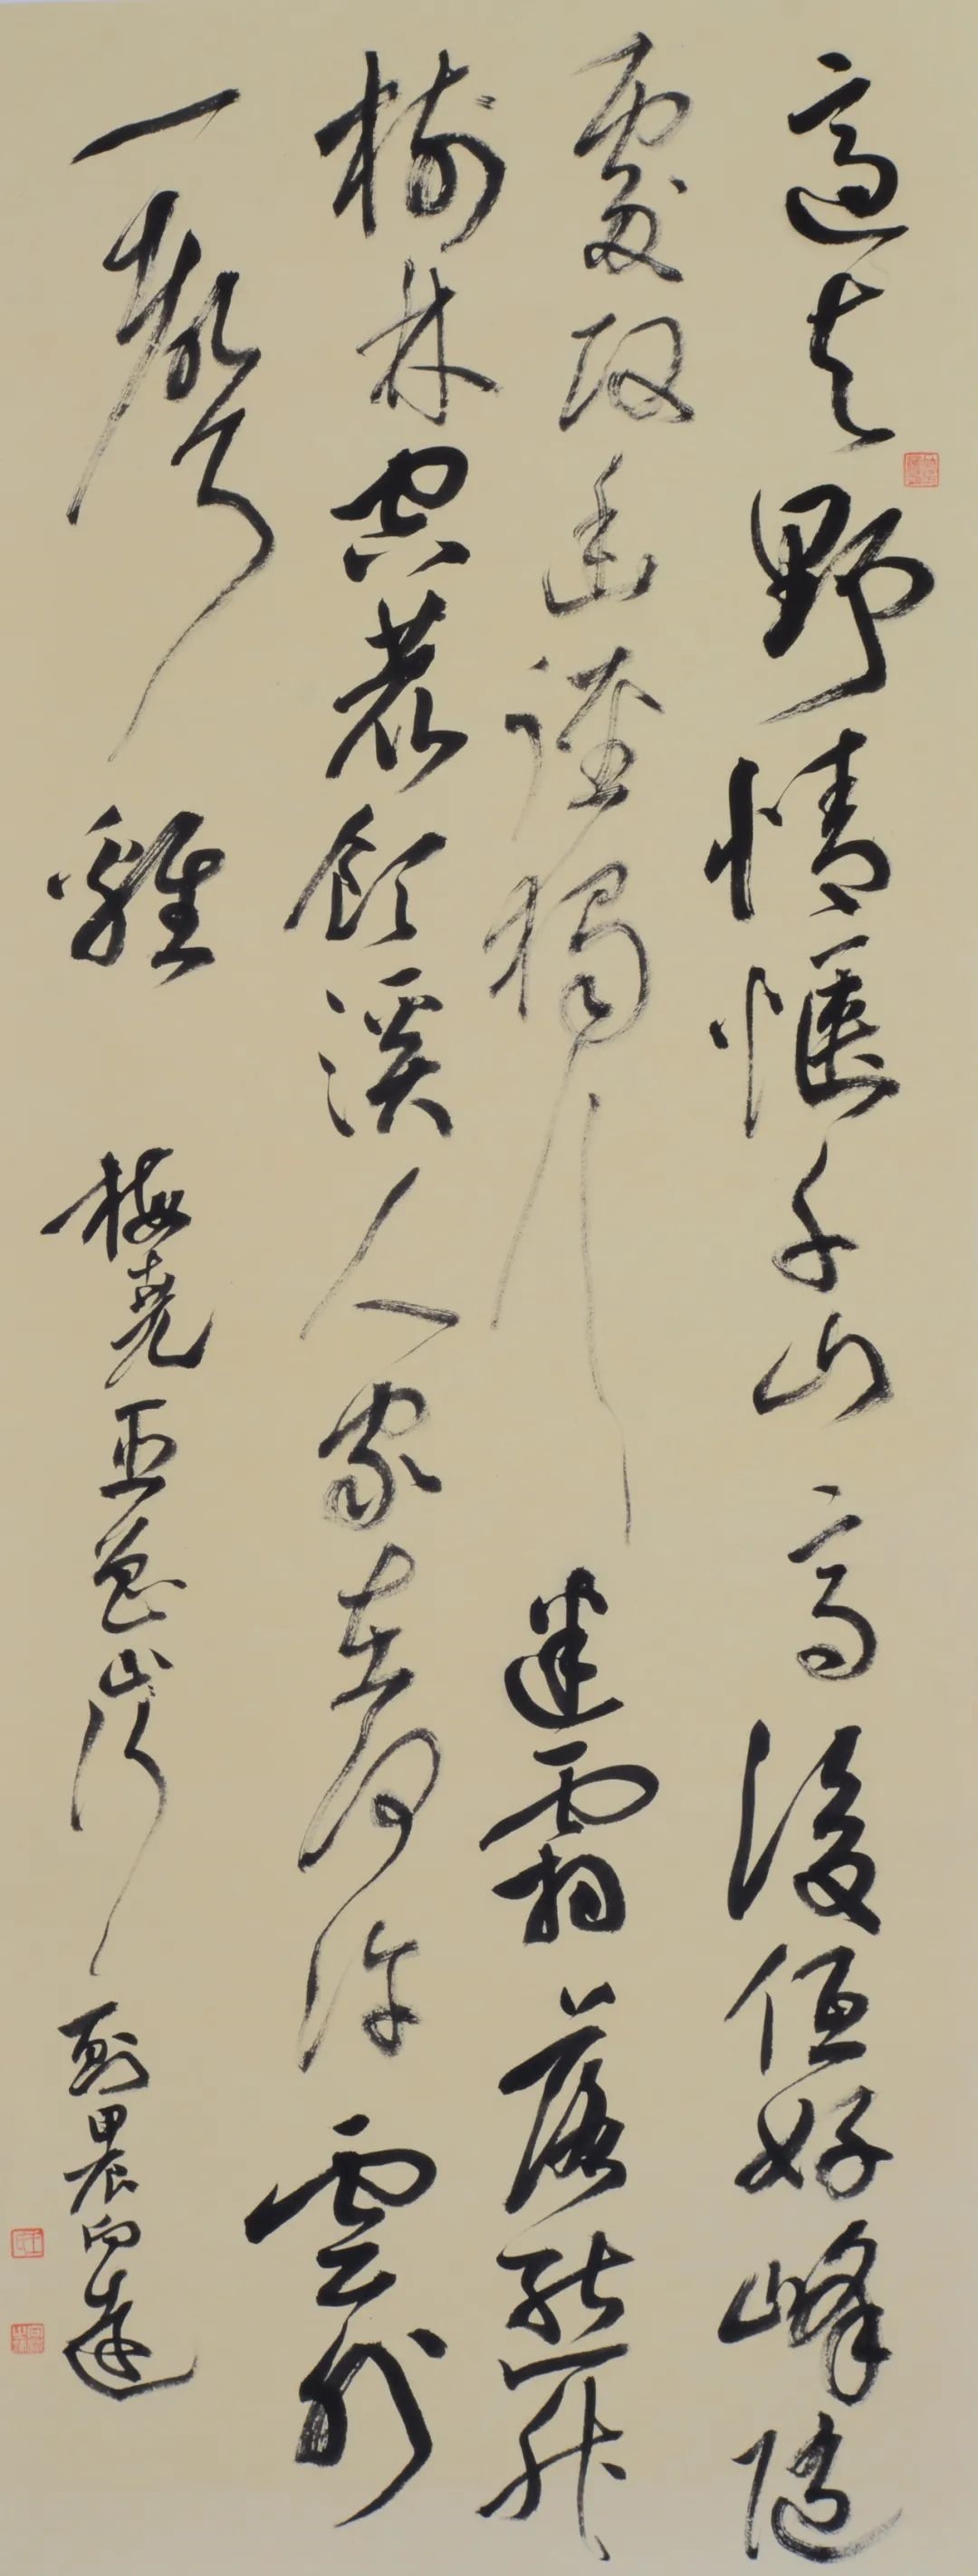 適与野情愜千山高復低好峰隨
處改幽徑獨行迷霜落熊升
樹林空鹿飲溪人家在何許雲外
一聲雞 梅堯臣魯山行